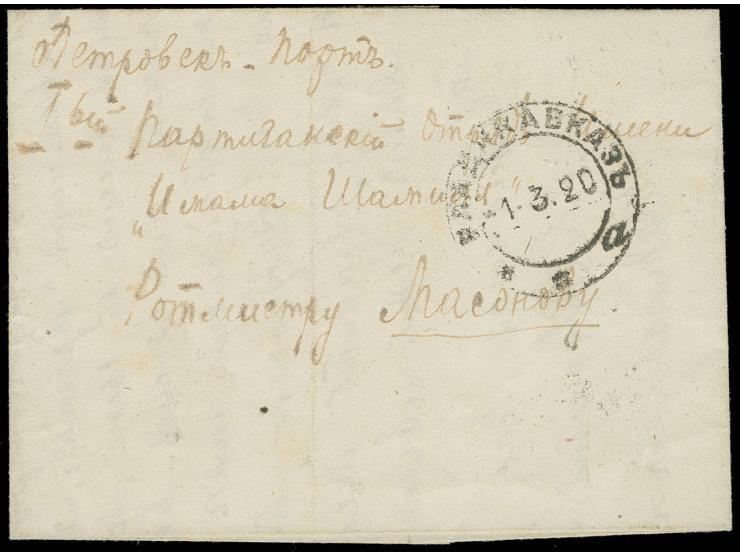 Петровскъ - Портъ.
Iый Партизанскiй Отрядъ имени
"Имама Шамиля"
Ротмистру Масонову.
ВЛАДИКАВКАЗЪ
1.3.20
а